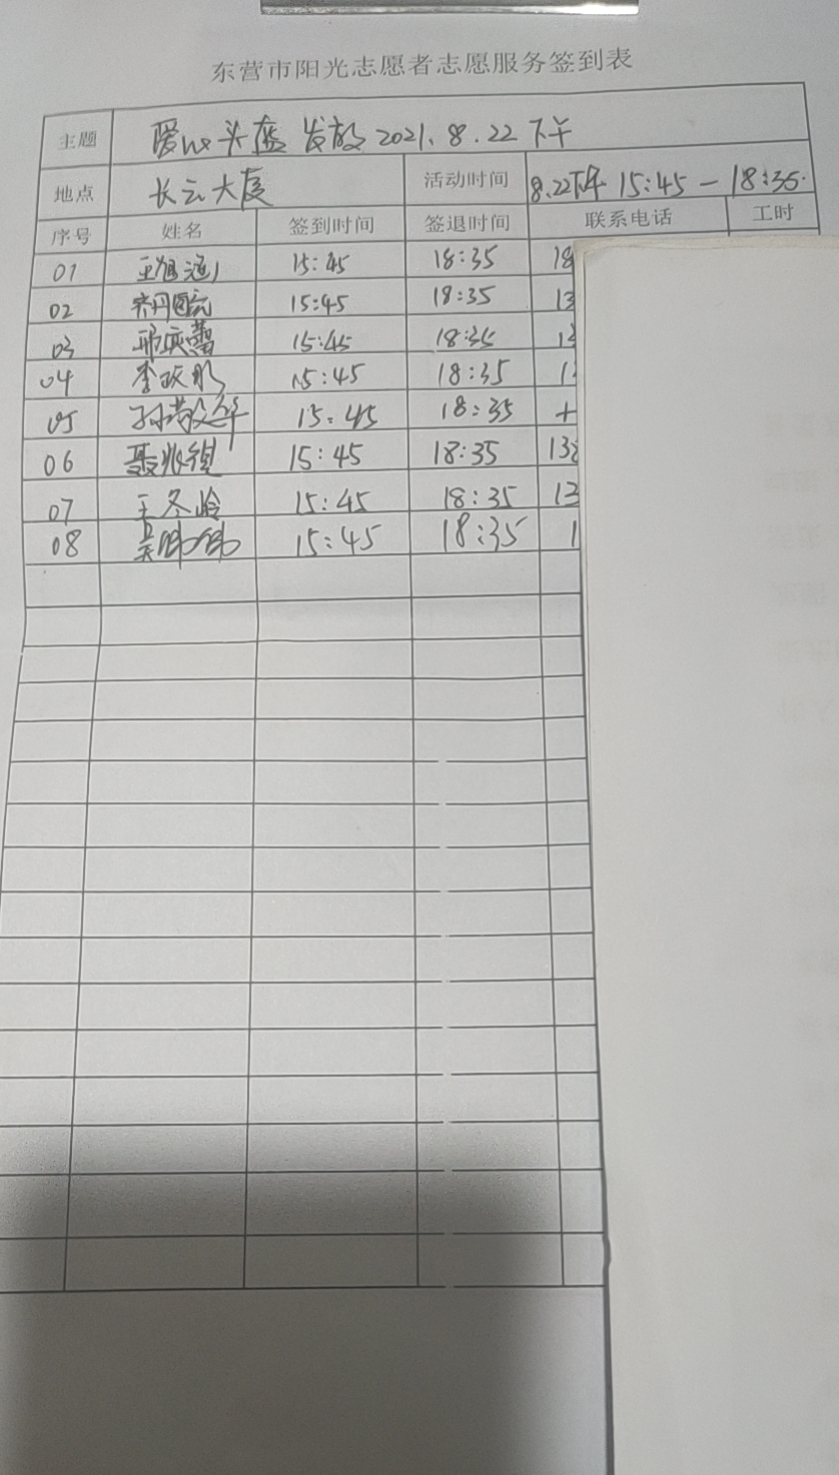 东营市阳光志愿者志愿服务签到表
主题 爱心头盔 发放 2021.8.22 下午
地点 长云大厦 活动时间 8.22下午 15:45-18:35.
序号 姓名 签到时间 签退时间 联系电话 工时
01 15:45 18:35 18
02 15:45 18:35 13
03 15:45 18:35 13
04 李政彤 15:45 18:35 1
05 15:45 18:35
06 聂兆祖 15:45 18:35 138
07 王冬岭 15:45 18:35 13
08 吴伟伟 15:45 18:35 1